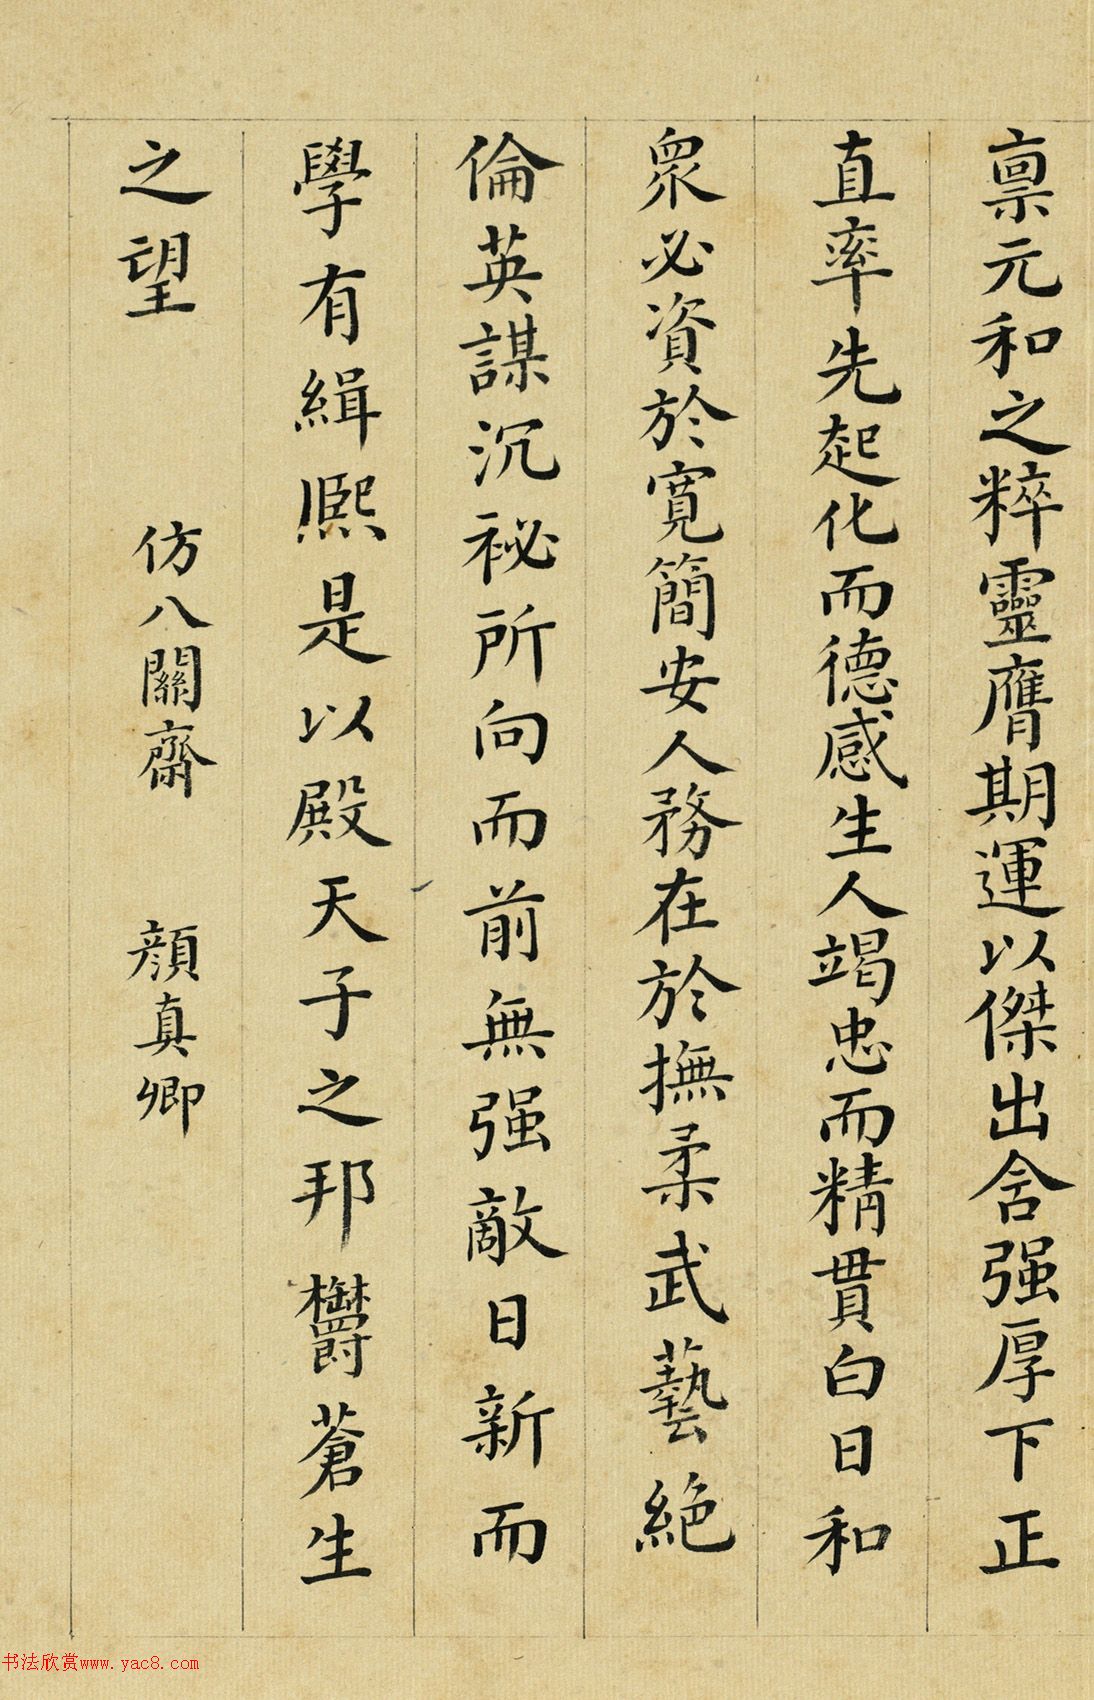 禀元和之粹靈膺期運以傑出含强厚下正
直率先起化而德感生人竭忠而精貫白日和
眾必資於寬簡安人務在於撫柔武藝絕
倫英謀沉祕所向而前無强敵日新而
學有緝熈是以殿天子之邦欝蒼生
之望
仿八關齋 顏真卿
书法欣赏www.yac8.com